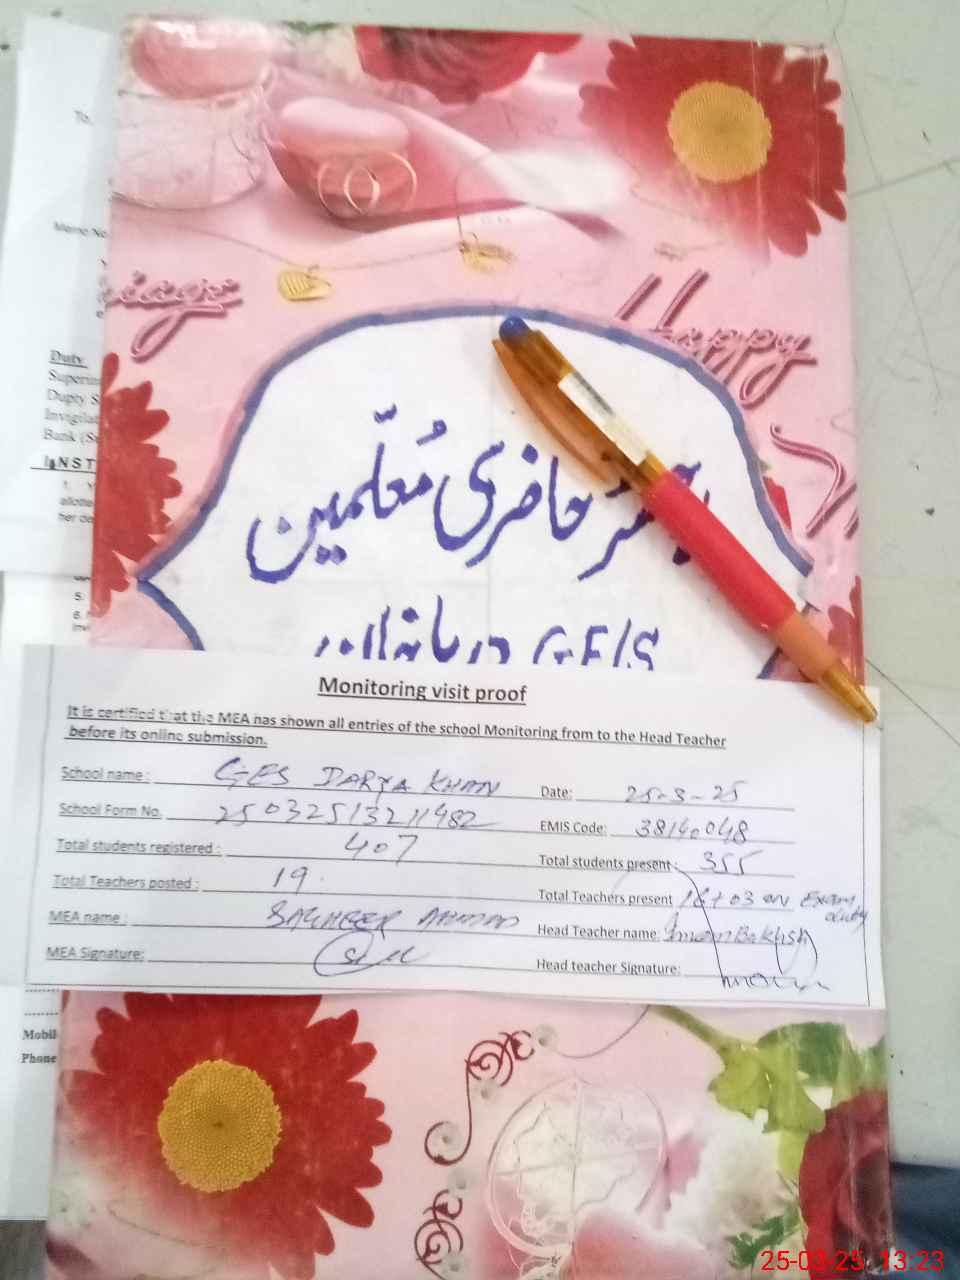 To,
Memo No
Duty
Dupty S
Bank (S
INST
1.
her de
5.
6.
riage
Happy
حاضری مُعلّمین
GES
Monitoring visit proof
It is certified that the MEA has shown all entries of the school Monitoring from to the Head Teacher
before its online submission.
School name : GES DARYA KHAN Date: 25-3-25
School Form No. 25032513211482 EMIS Code: 38140048
Total students registered : 407 Total students present : 355
Total Teachers posted : 19. Total Teachers present 16+03 on Exam duty
MEA name : SAGHEER AHMAD Head Teacher name: Imam Bakhsh
MEA Signature: Head teacher Signature:
Mobil
Phone
25-03-25 13:23